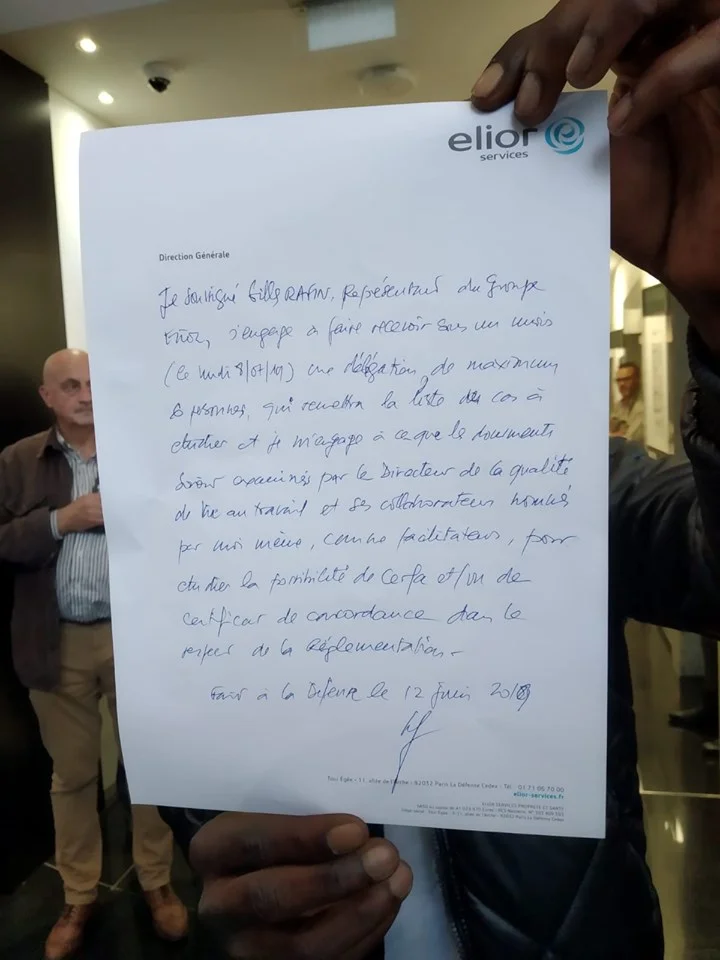 elior
services
Direction Générale
Je soussigné Gilles RAFIN, Représentant du Groupe
Elior, s'engage à faire recevoir sous un mois
(le lundi 8/07/19) une délégation de maximum
personnes, qui remettra la liste des cas à
étudier et je m'engage à ce que le documents
examinés par le Directeur de la qualité
de vie au travail et ses collaborateurs nommés
par moi même, comme facilitateurs, pour
étudier la possibilité de Cerfa et/ou de
certificat de concordance dans le
respect de la Réglementation.
Fait à la Défense le 12 juin 2019
Tour Egée - 11, allée de l'Arche - 92032 Paris La Défense Cedex - Tél. 01 71 06 70 00
elior-services.fr
ELIOR SERVICES PROPRETÉ ET SANTÉ